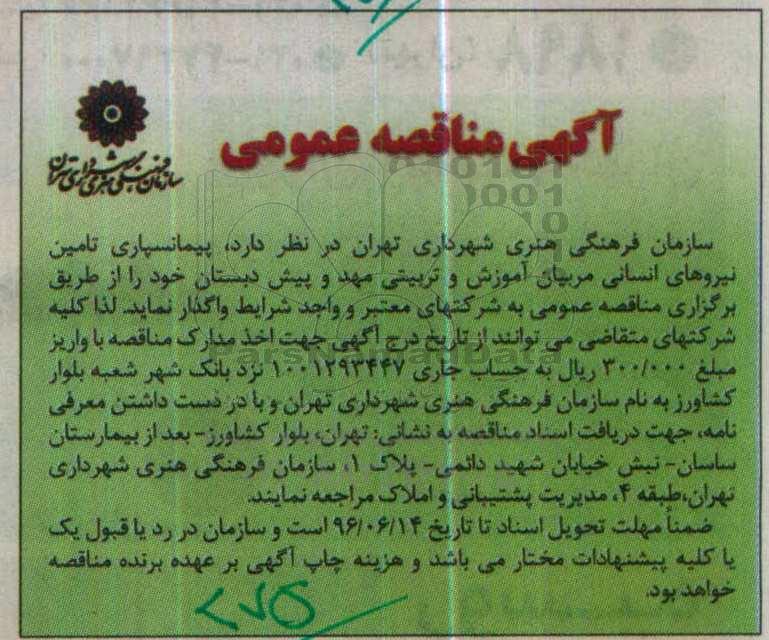 آگهی مناقصه عمومی
سازمان فرهنگی هنری شهرداری تهران
سازمان فرهنگی هنری شهرداری تهران در نظر دارد، پیمانسپاری تامین
نیروهای انسانی مربیان آموزش و تربیتی مهد و پیش دبستان خود را از طریق
برگزاری مناقصه عمومی به شرکتهای معتبر و واجد شرایط واگذار نماید. لذا کلیه
شرکتهای متقاضی می توانند از تاریخ درج آگهی جهت اخذ مدارک مناقصه با واریز
مبلغ ۳۰۰/۰۰۰ ریال به حساب جاری ۱۰۰۱۲۹۳۴۴۷ نزد بانک شهر شعبه بلوار
کشاورز به نام سازمان فرهنگی هنری شهرداری تهران و با در دست داشتن معرفی
نامه، جهت دریافت اسناد مناقصه به نشانی: تهران، بلوار کشاورز- بعد از بیمارستان
ساسان- نبش خیابان شهید دائمی- پلاک ۱، سازمان فرهنگی هنری شهرداری
تهران،طبقه ۴، مدیریت پشتیبانی و املاک مراجعه نمایند.
ضمناً مهلت تحویل اسناد تا تاریخ ۹۶/۰۶/۱۴ است و سازمان در رد یا قبول یک
یا کلیه پیشنهادات مختار می باشد و هزینه چاپ آگهی بر عهده برنده مناقصه
خواهد بود.
ParsNamadData